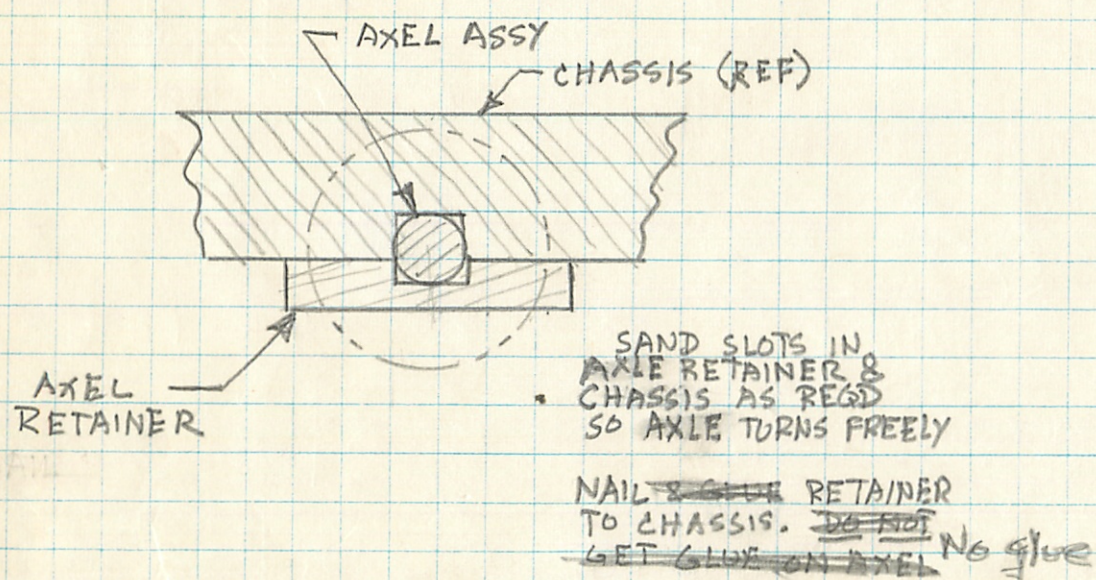 AXEL ASSY
CHASSIS (REF)
AXEL
RETAINER
SAND SLOTS IN
AXLE RETAINER &
CHASSIS AS REQD
SO AXLE TURNS FREELY
NAIL & GLUE RETAINER
TO CHASSIS. DO NOT
GET GLUE ON AXEL No glue